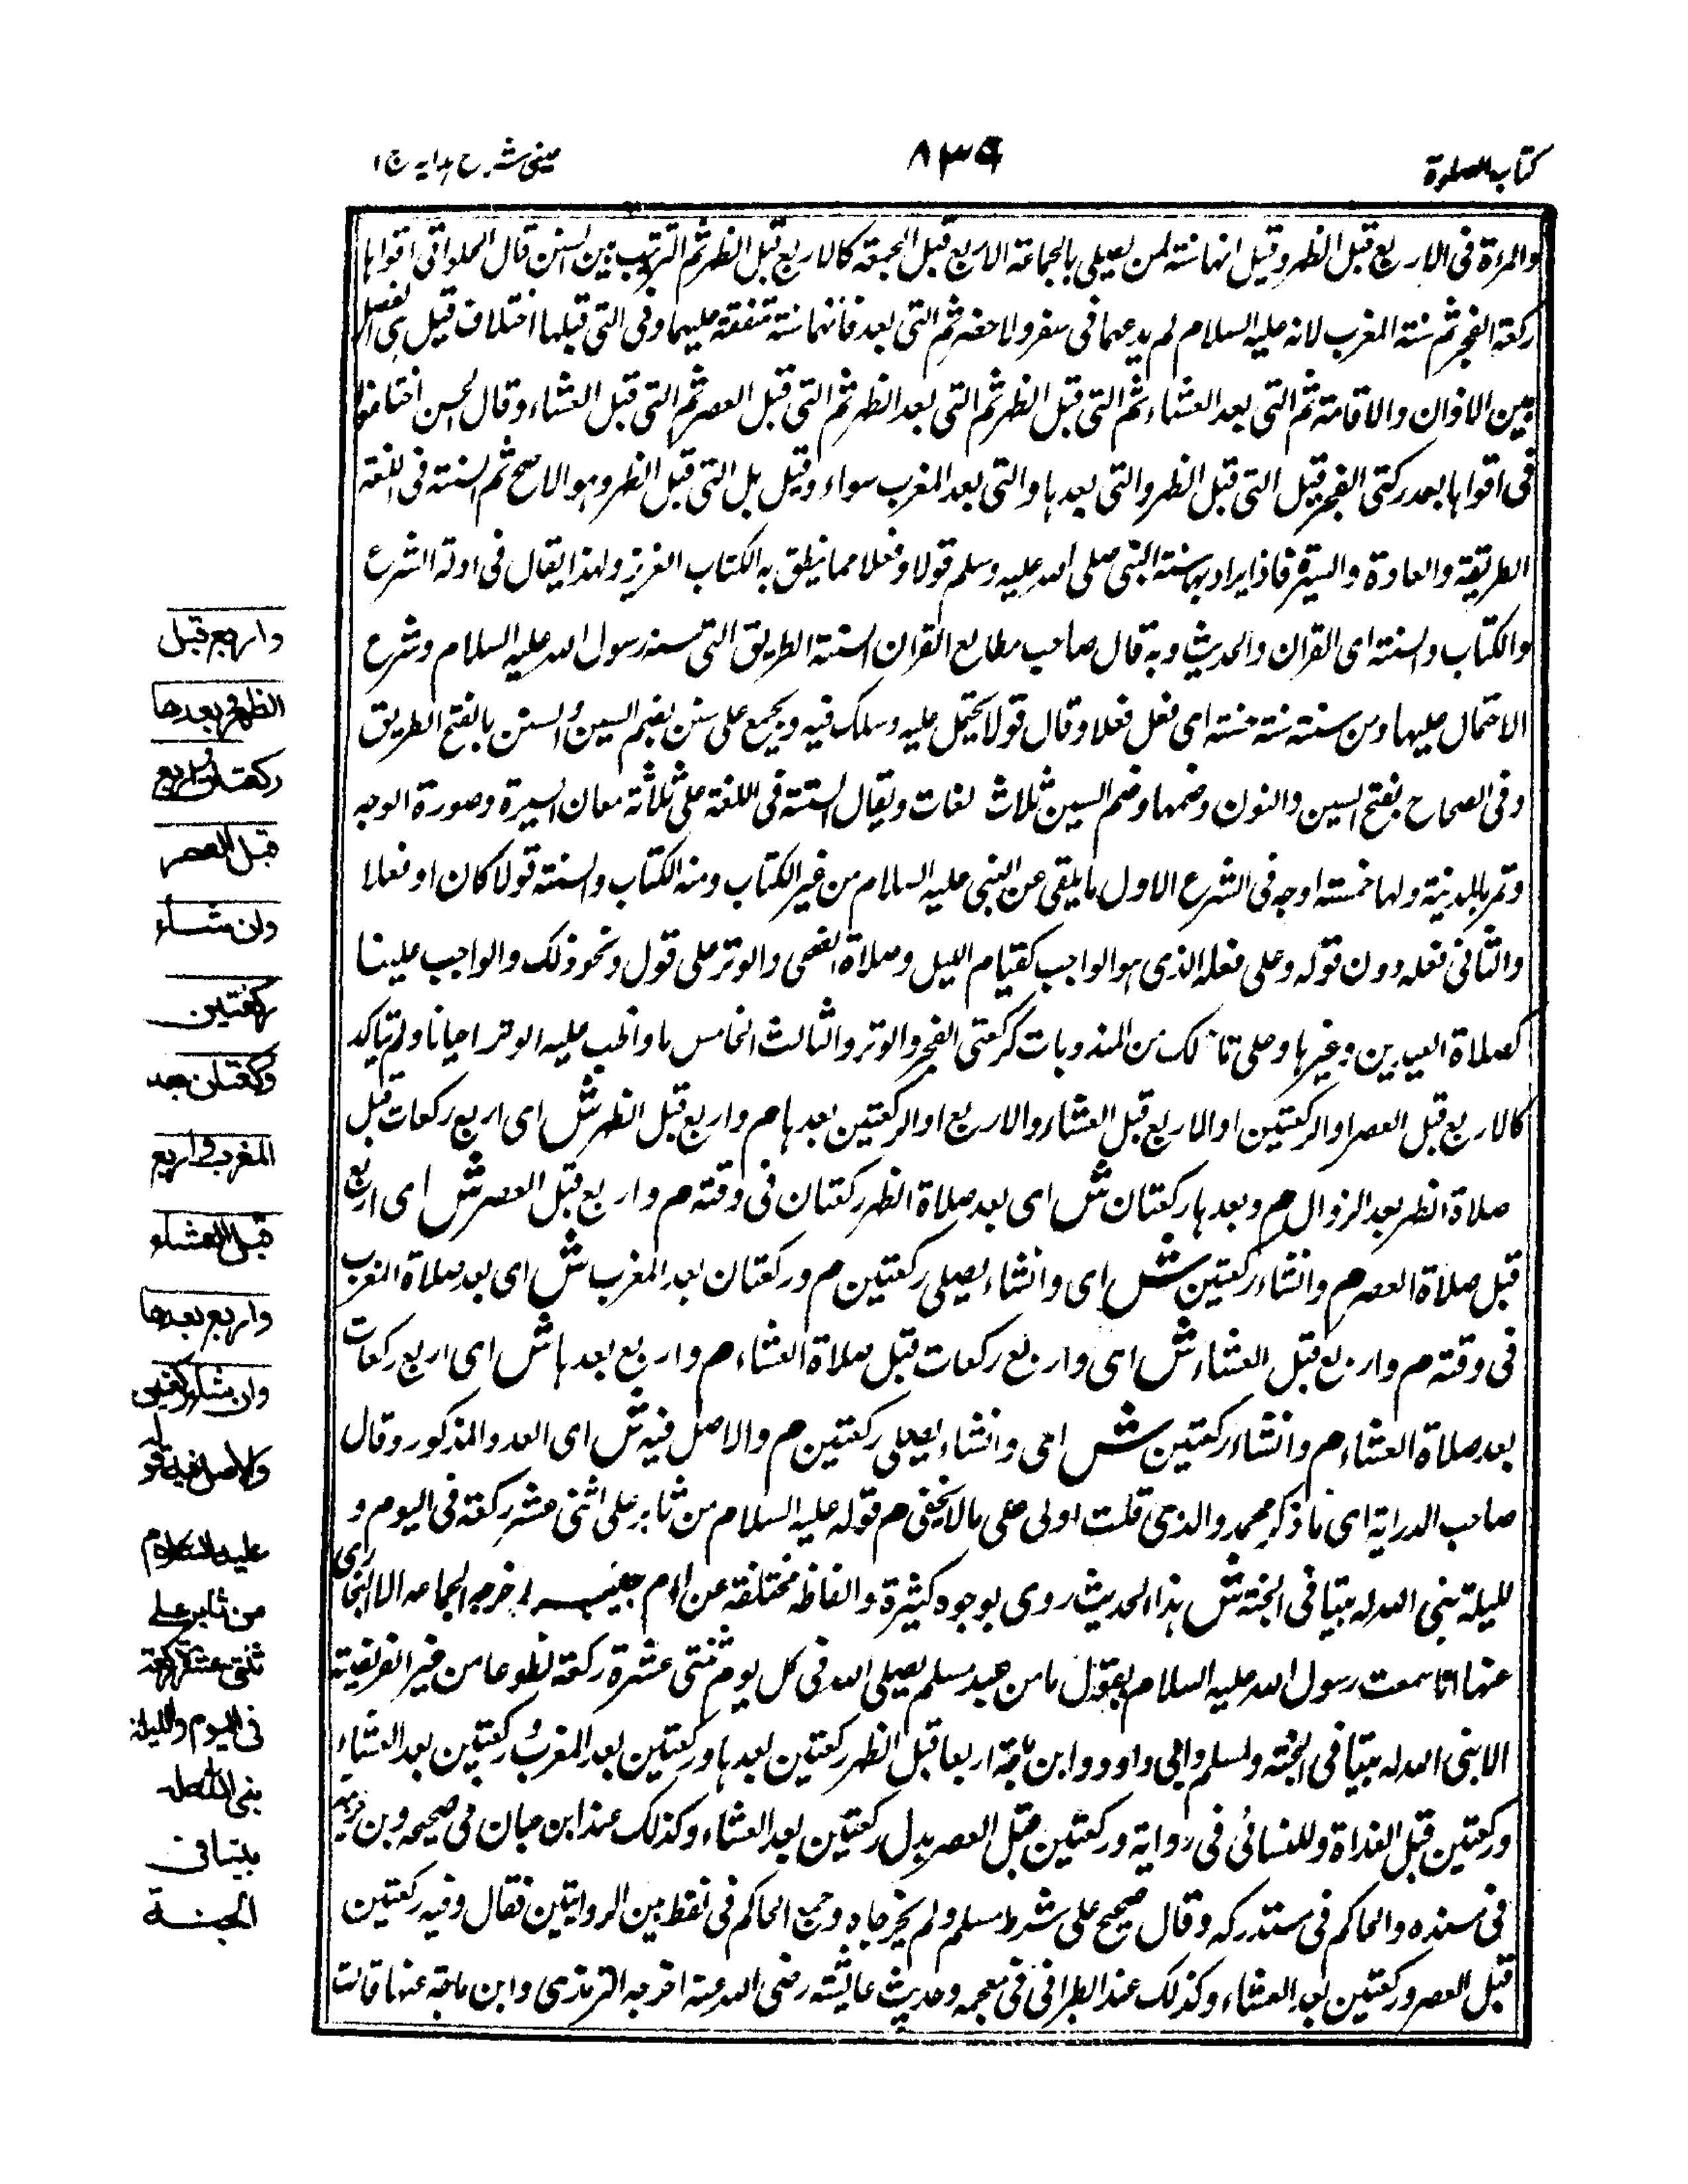 كتاب الصلوة
٨٣٩
عينى شرح هدايه ج ١
والمرءة فى الاربع قبل الظهر وقيل انها سنة لمن يصلى بالجماعة الاربع قبل الجمعة كالاربع قبل الظهر ثم الترتيب بين السنن قال الحلوانى اقواها
ركعتا الفجر ثم سنة المغرب لانه عليه السلام لم يدعهما فى سفر ولا حضر ثم التى بعد فانها سنة متفقة عليها وفى التى قبلها اختلاف قيل هى الفصل
بين الاذان والاقامة ثم التى بعد العشاء ثم التى قبل الظهر ثم التى بعد الظهر ثم التى قبل العصر ثم التى قبل العشاء وقال الحسن اختلفوا
فى اقواها بعد ركعتى الفجر قيل التى قبل الظهر والتى بعدها والتى بعد المغرب سواء وقيل بل التى قبل الظهر وهو الاصح ثم السنة فى اللغة
الطريقة والعادة والسيرة فاذا يراد بها سنة النبى صلى الله عليه وسلم قولا وفعلا مما ينطق به الكتاب العزيز ولهذا يقال فى ادلة الشرع
والكتاب والسنة اى القران والحديث وبه قال صاحب مطالع القران السنة الطريق التى سنه رسول الله عليه السلام وشرع
الاحتمال عليها ومن سنته سنة حسنة اى فعل فعلا وقال قولا يحتمل عليه وسلك فيه ويجمع على سنن بضم السين والسنن بالفتح الطريق
وفى الصحاح بفتح السين والنون وضمها وضم السين ثلاث لغات ويقال السنة فى اللغة على ثلاثة معان السيرة وصورة الوجه
وتمر بالمدينة ولها خمسة اوجه فى الشرع الاول ما يلقى عن النبى عليه السلام من غير الكتاب ومنه الكتاب والسنة قولا كان او فعلا
والثانى فعله دون قوله وعلى فعله الذى هو الواجب كقيام الليل وصلاة الضحى والوتر على قول ونحو ذلك والواجب علينا
كصلاة العيدين وغيرها وعلى تا لك من المندوبات كركعتى الفجر والوتر والثالث الخامس ما واظب عليه الوتر احيانا ولم تياكد
كالاربع قبل العصر او الركعتين او الاربع قبل العشاء والاربع او الركعتين بعدها م واربع قبل الظهر ش اى اربع ركعات قبل
صلاة الظهر بعد الزوال م وبعدها ركعتان ش اى بعد صلاة الظهر ركعتان فى وقته م واربع قبل العصر ش اى اربع
قبل صلاة العصر م وانشاء ركعتين ش اى وانشاء يصلى ركعتين م وركعتان بعد المغرب ش اى بعد صلاة المغرب
فى وقته م واربع قبل العشاء ش اى واربع ركعات قبل صلاة العشاء م واربع بعدها ش اى اربع ركعات
بعد صلاة العشاء م وانشاء ركعتين ش اى وانشاء يصلى ركعتين م والاصل فيه ش اى العدد المذكور وقال
صاحب الدراية اى ما ذكر محمد والذى قلت اولى على مالا يخفى م قوله عليه السلام من ثابر على اثنى عشر ركعة فى اليوم و
لليلة بنى الله له بيتا فى الجنة ش هذا الحديث روى بوجوه كثيرة والفاظ مختلفة عن ام اخرجه الجماعه الا البخارى
عنها انا سمعت رسول الله عليه السلام يقول ما من عبد مسلم يصلى لله فى كل يوم ثنتى عشرة ركعة تطوعا من غير الفريضة
الا بنى الله له بيتا فى الجنة ولمسلم وابى داود وابن ماجة اربعا قبل الظهر ركعتين بعدها وركعتين بعد المغرب وركعتين بعد العشاء
وركعتين قبل الغداة وللنسائى فى رواية وركعتين قبل العصر بدل ركعتين بعد العشاء وكذلك عند ابن حبان فى صحيحه وبن خزيمة
فى مسنده والحاكم فى مستدركه وقال صحيح على شرط مسلم ولم يخرجاه وجمع الحاكم فى لفظ بين الروايتين فقال وفيه ركعتين
قبل العصر وركعتين بعد العشاء وكذلك عند الطبرانى فى معجمه وحديث عايشة رضى الله عنها اخرجه الترمذى وابن ماجة عنها قالت
واربع قبل
الظهر وبعدها
ركعتان واربع
قبل العصر
وان شاء
ركعتين
وركعتان بعد
المغرب واربع
قبل العشاء
واربع بعدها
وان شاء ركعتين
والاصل فيه قوله
عليه السلام
من ثابر على
ثنتى عشرة ركعة
فى اليوم والليلة
بنى الله له
بيتا فى
الجنة